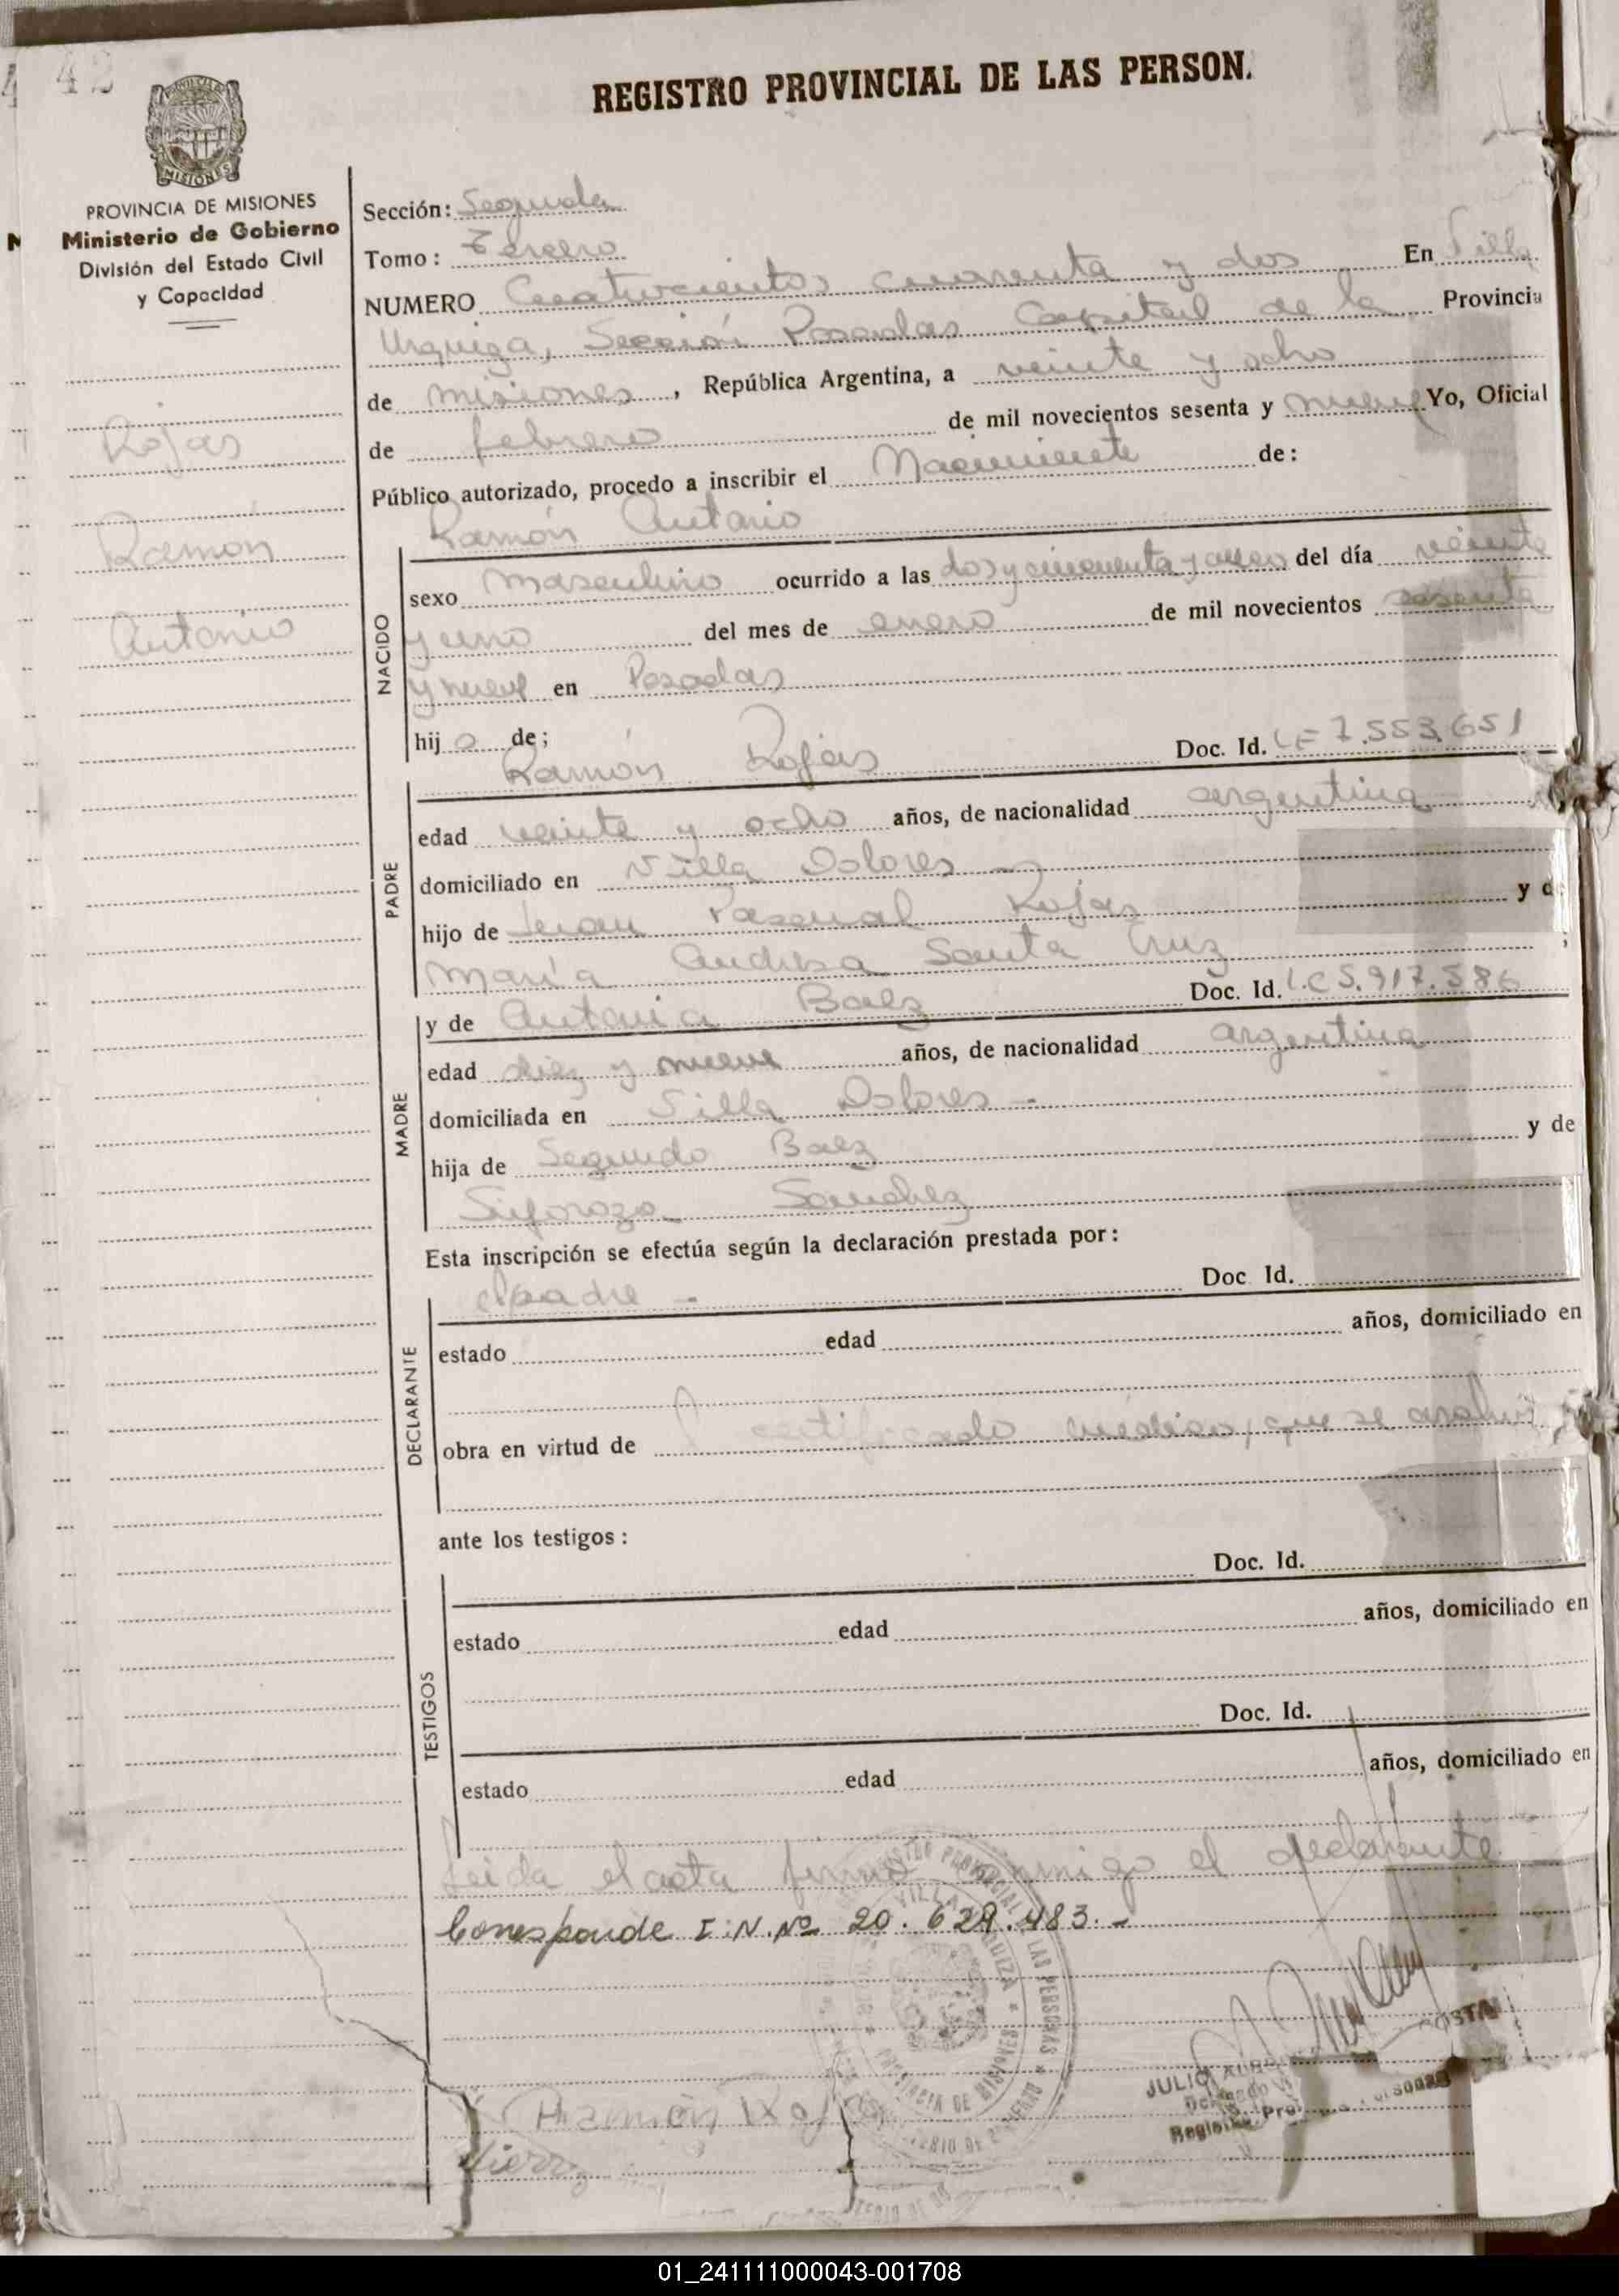 42
REGISTRO PROVINCIAL DE LAS PERSON.
MISIONES
PROVINCIA DE MISIONES
Ministerio de Gobierno
División del Estado Civil
y Capacidad
Rojas
Ramón
Antonio
Sección: Segunda
Tomo: Tercero
NUMERO Cuatrocientos cuarenta y dos En Villa
Urquiza, Sección Posadas Capital de la Provincia
de misiones, República Argentina, a veinte y ocho
de febrero de mil novecientos sesenta y nueve Yo, Oficial
Público autorizado, procedo a inscribir el Nacimiento de:
Ramón Antonio
NACIDO
sexo masculino ocurrido a las dos y cincuenta y del día veinte
y uno del mes de enero de mil novecientos sesenta
y nueve en Posadas
hijo de;
Ramón Rojas Doc. Id. LE 7.553.651
PADRE
edad veinte y ocho años, de nacionalidad argentina
domiciliado en Villa Dolores
hijo de Juan Pascual Rojas y de
María Andresa Santa Cruz;
y de Antonia Baez Doc. Id. L.C 5.917.586
MADRE
edad diez y nueve años, de nacionalidad argentina
domiciliada en Villa Dolores -
hija de Segundo Baez y de
Sanchez
Esta inscripción se efectúa según la declaración prestada por:
el padre - Doc Id.
DECLARANTE
estado edad años, domiciliado en
obra en virtud de certificado médico, que se archiva
ante los testigos:
Doc. Id.
TESTIGOS
estado edad años, domiciliado en
Doc. Id.
estado edad años, domiciliado en
Leida el acta firmó conmigo el declarante
Corresponde I.N.Nº 20.629.483.-
REGISTRO PROVINCIAL DE LAS PERSONAS
VILLA URQUIZA
PROVINCIA DE MISIONES
Ramón Rojas
JULIO
01_241111000043-001708